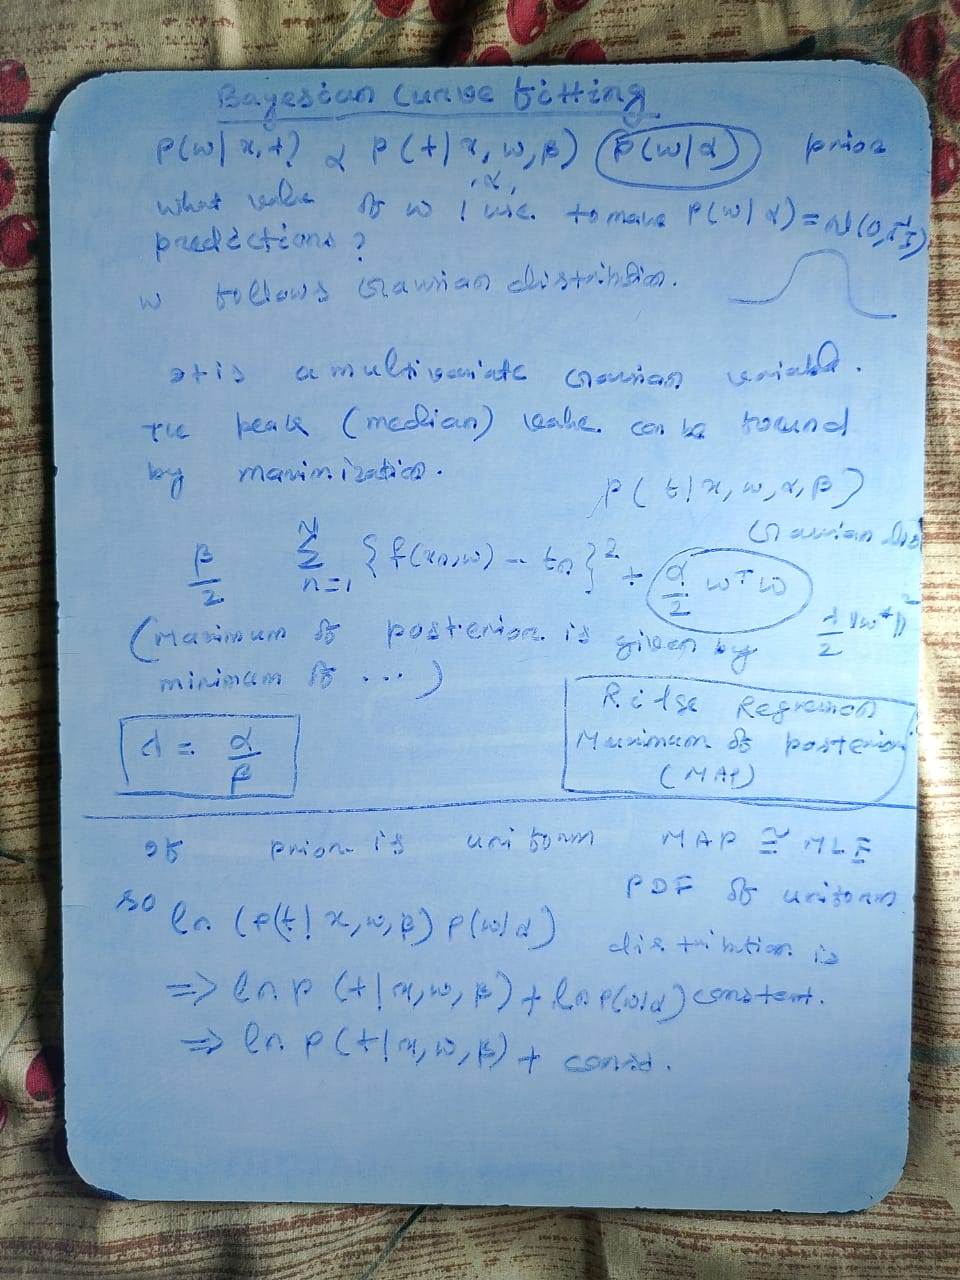 Bayesian Curve fitting
P(w| x, t) α P(t| x, w, β) P(w|α) prior
, α,
what value of w I use to make P(w|α) = N(0, α⁻¹I)
predictions?
w follows Gaussian distribution.
It is a multivariate Gaussian variable.
The peak (median) value can be found
by maximization.
P(t|x, w, α, β)
Gaussian dis
β/2 N∑n=1 {f(xn,w) - tn}² + α/2 wᵀw
(Maximum of posterior is given by λ/2 ||w||²
minimum of ...)
Ridge Regression
Maximum of posterior
(MAP)
λ = α/β
If prior is uniform MAP ≅ MLE
PDF of uniform
distribution is
constant.
so ln (P(t| x, w, β) P(w|α)
=> ln P (t|x, w, β) + ln P(w|α)
=> ln P(t|x, w, β) + const.